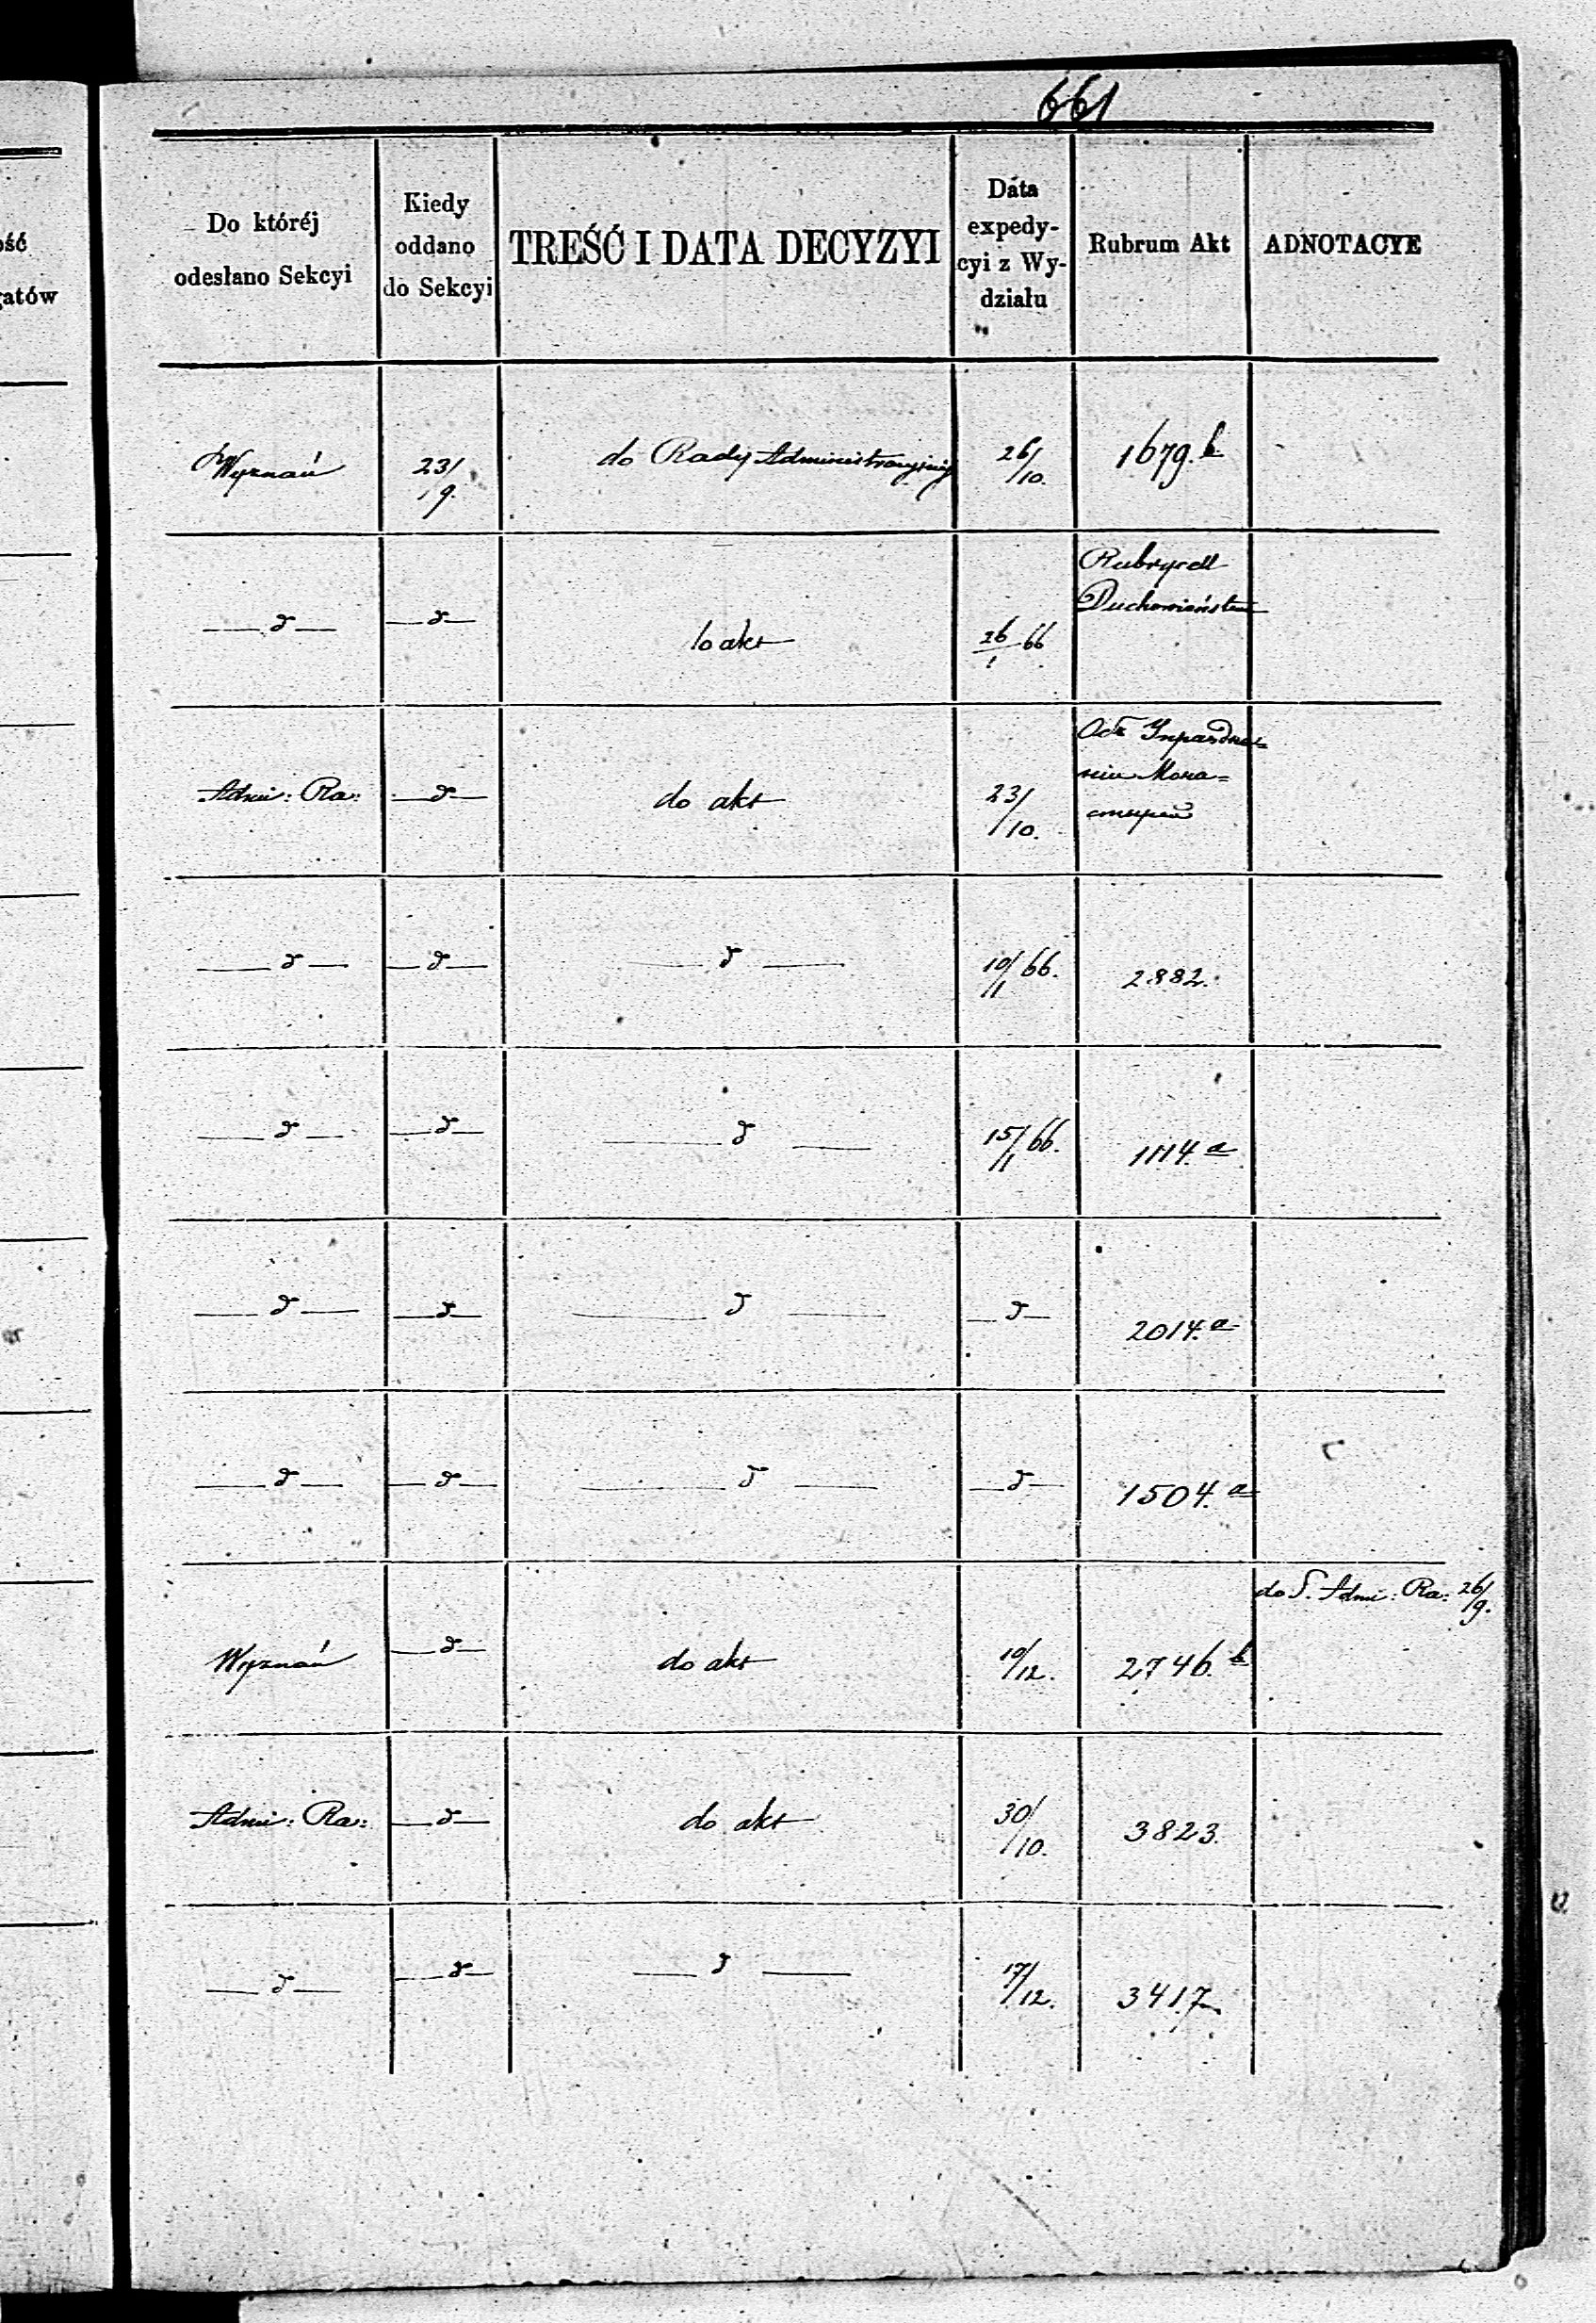 661
ość
gatów
Do któréj
odesłano Sekcyi
Kiedy
oddano
do Sekcyi
TREŚĆ I DATA DECYZYI
Data
expedy-
cyi z Wy-
działu
Rubrum Akt
ADNOTACYE
Wyznań 23/9. do Rady Administracyjnej 26/10. 1679.b
Rubrycell
Duchowieństwa
—d— —d— do akt 26/1 66
Объ Упраздне-
нiи Мона=
стырей
Admi: Ra: —d— do akt 23/10.
—d— —d— —d— 10/1 66. 2882.
—d— —d— —d— 15/1 66. 1114.a
—d— —d— —d— —d— 2014.a
—d— —d— —d— —d— 1504.a
do S. Admi: Ra: 26/9.
Wyznań —d— do akt 10/12. 2746.b
Admi: Ra: —d— do akt 30/10. 3823.
—d— —d— —d— 17/12. 3417.